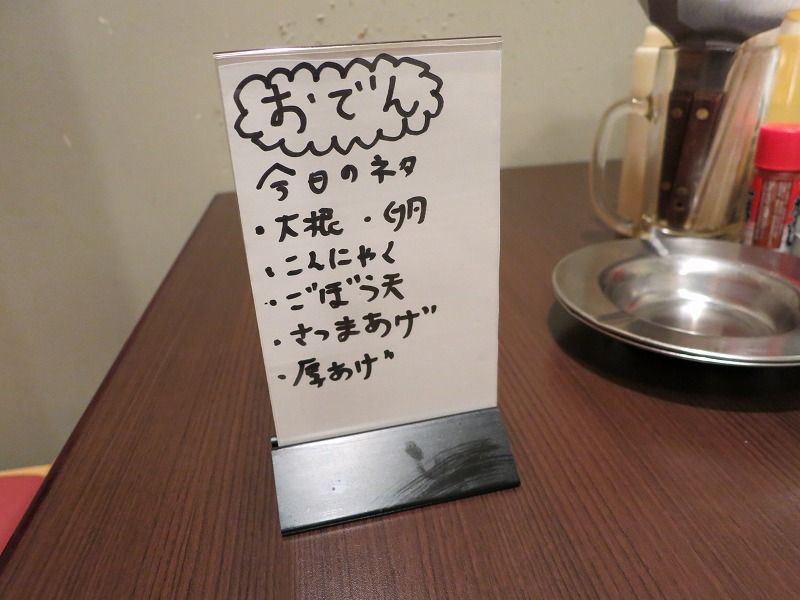 おでん
今日のネタ
・大根 ・卵
・こんにゃく
・ごぼう天
・さつまあげ
・厚あげ